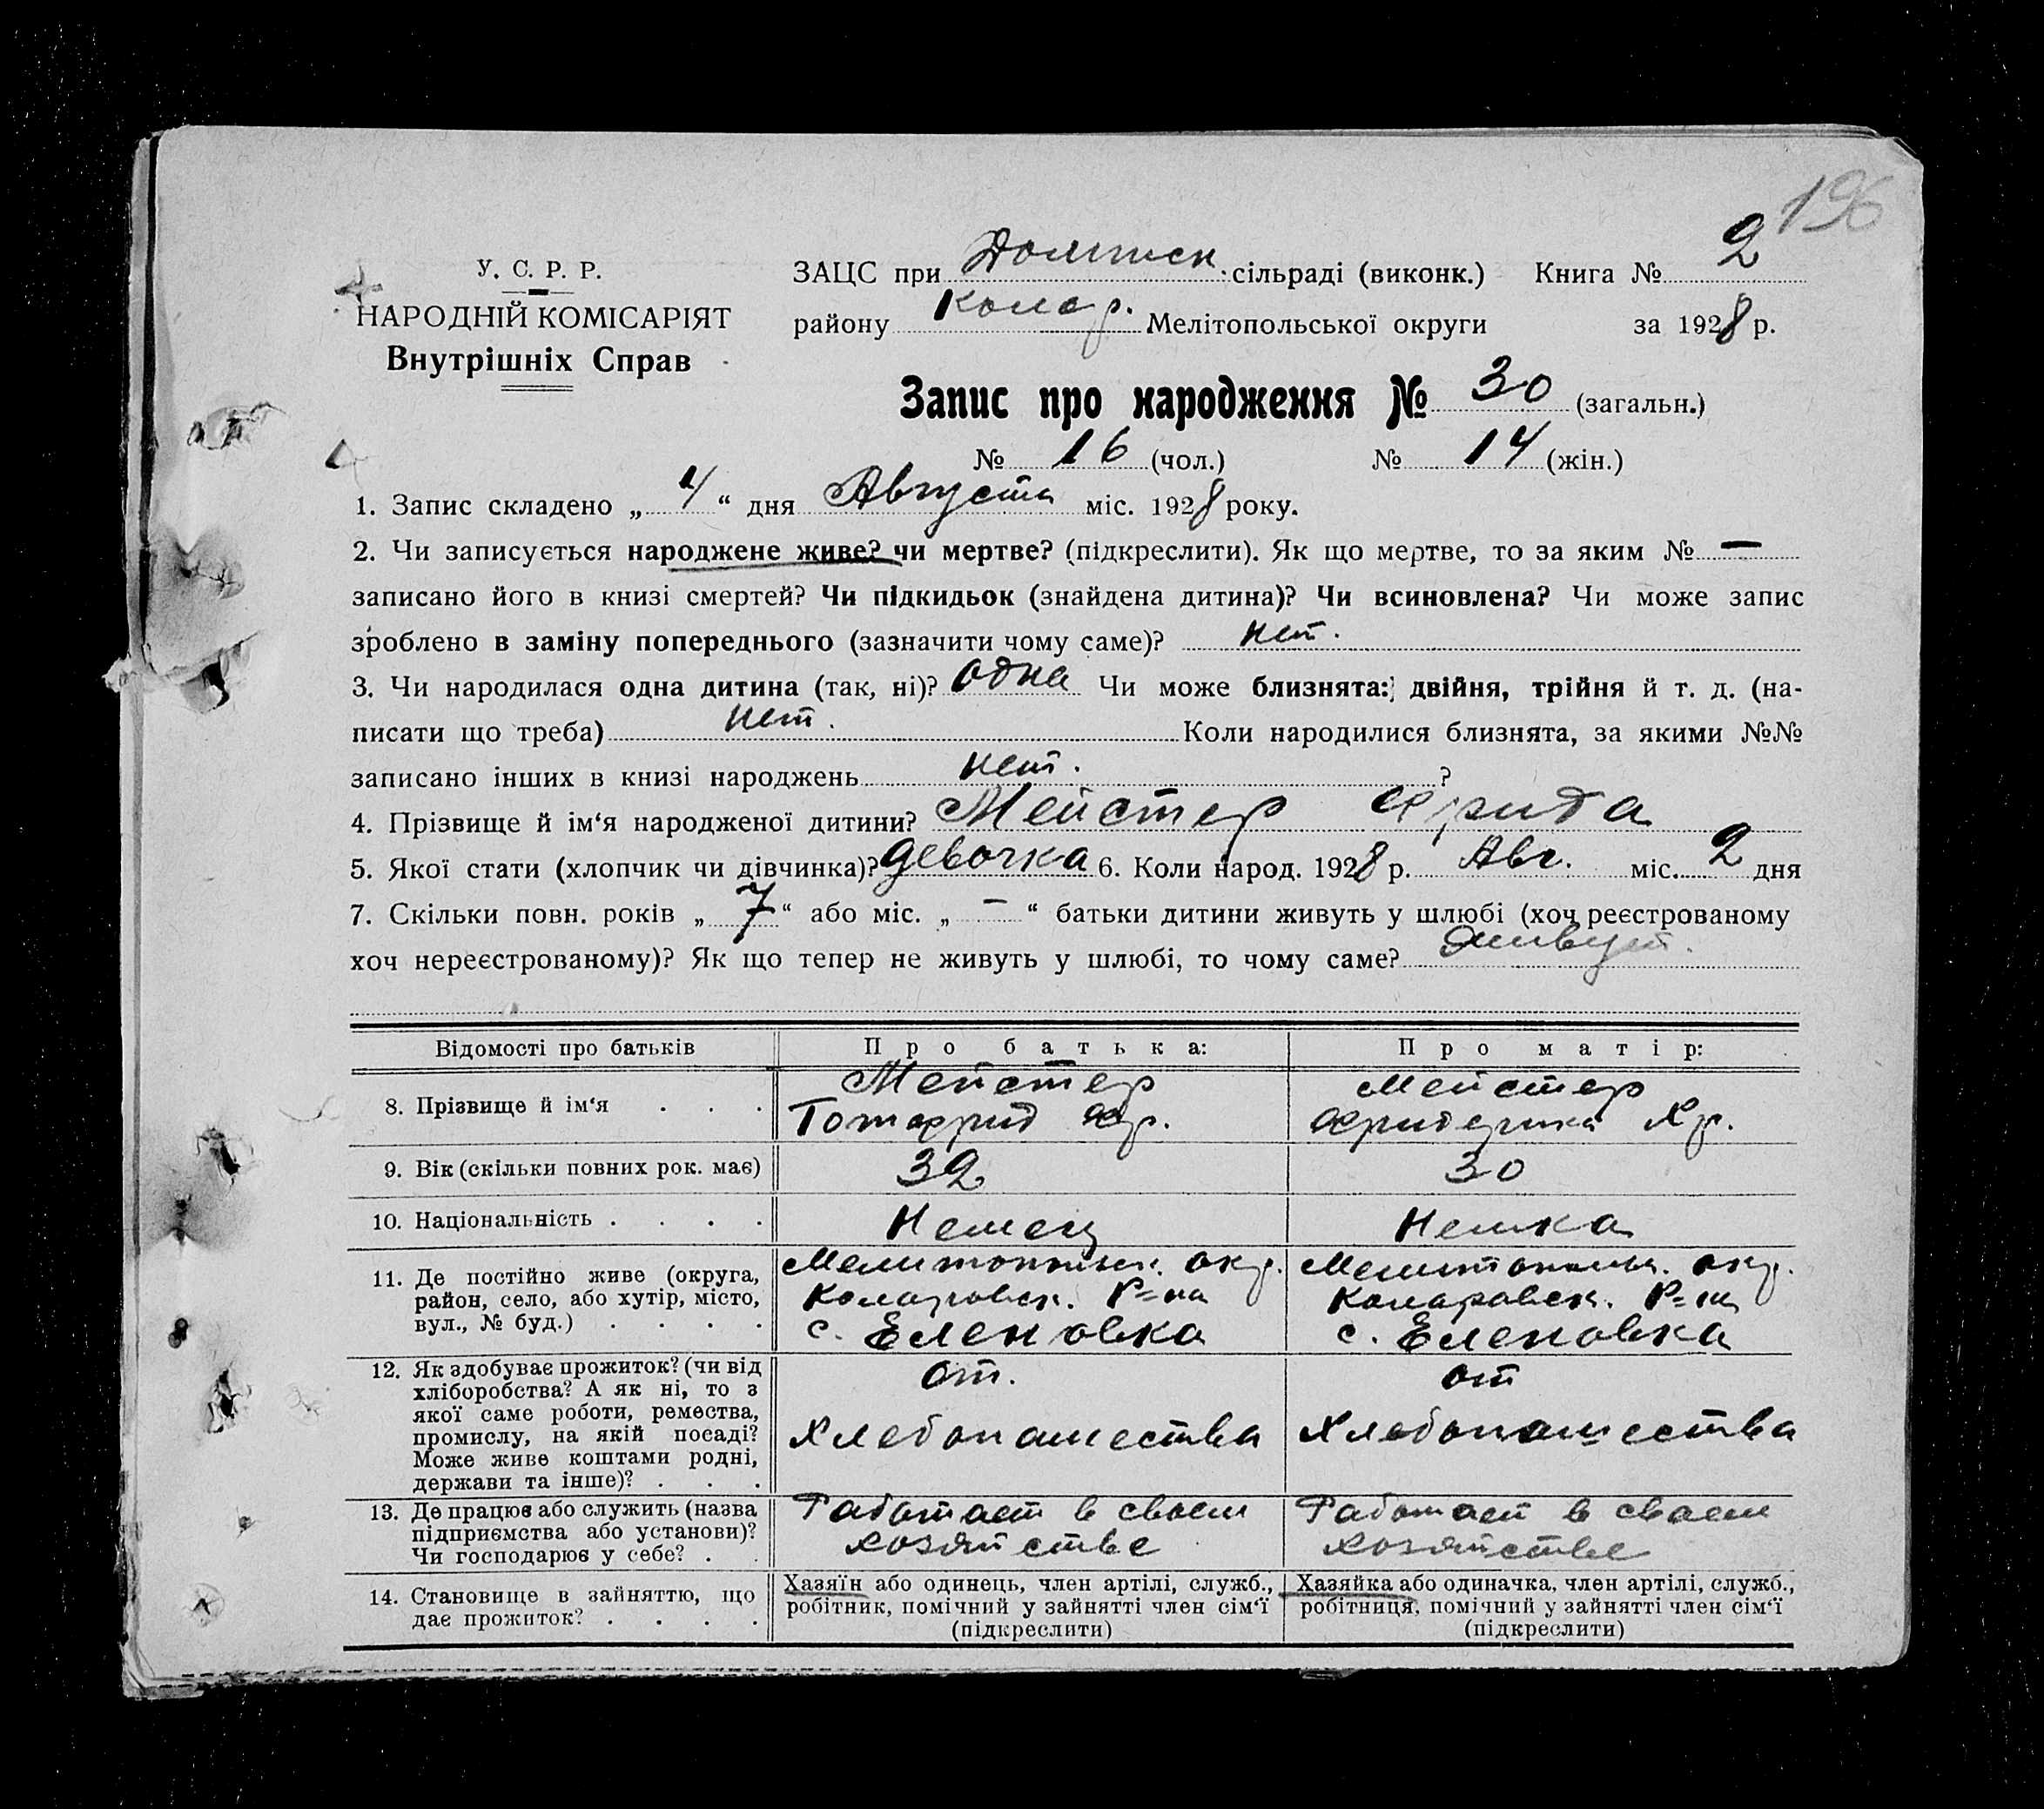 196
У. С. Р. Р.
НАРОДНІЙ КОМІСАРІЯТ
Внутрішніх Справ
ЗАЦС при сільраді (виконк.) Книга № 2
району Колар. Мелітопольської округи за 1928 р.
Запис про народження № 30 (загальн.)
№ 16 (чол.) № 14 (жін.)
1. Запис складено „ 4 “ дня Августа міс. 1928 року.
2. Чи записується народжене живе? чи мертве? (підкреслити). Як що мертве, то за яким № —
записано його в книзі смертей? Чи підкидьок (знайдена дитина)? Чи всиновлена? Чи може запис
зроблено в заміну попереднього (зазначити чому саме)? нет.
3. Чи народилася одна дитина (так, ні)? одна Чи може близнята: двійня, трійня й т. д. (на-
писати що треба) нет. Коли народилися близнята, за якими №№
записано інших в книзі народжень нет. ?
4. Прізвище й ім‘я народженої дитини? Мейстер Фрида
5. Якої стати (хлопчик чи дівчинка)? девочка 6. Коли народ. 1928 р. Авг. міс. 2 дня
7. Скільки повн. років „ 7 “ або міс. „ — “ батьки дитини живуть у шлюбі (хоч реєстрованому
хоч нереєстрованому)? Як що тепер не живуть у шлюбі, то чому саме? живут.
Відомості про батьків Про батька: Про матір:
8. Прізвище й ім‘я . . .
Мейстер
Готфрид Фр.
Мейстер
Фридерика Хр.
9. Вік (скільки повних рок. має) 32 30
10. Національність . . . . Немец Немка
11. Де постійно живе (округа,
район, село, або хутір, місто,
вул., № буд.) . . . .
Мелитопольск. окр.
Коларовск. Р-на
с. Еленовка
Мелитопольск. окр.
Коларовск. Р-на
с. Еленовка
12. Як здобуває прожиток? (чи від
хліборобства? А як ні, то з
якої саме роботи, ремества,
промислу, на якій посаді?
Може живе коштами родні,
держави та інше)? . . .
от.
Хлебопашества
от
Хлебопашества
13. Де працює або служить (назва
підприємства або установи)?
Чи господарює у себе? . .
Работает в своем
хозяйстве
Работает в своем
хозяйстве
14. Становище в зайняттю, що
дає прожиток? . . . .
Хазяїн або одинець, член артілі, служб.,
робітник, помічний у зайнятті член сім‘ї
(підкреслити)
Хазяйка або одиначка, член артілі, служб.,
робітниця, помічний у зайнятті член сім‘ї
(підкреслити)